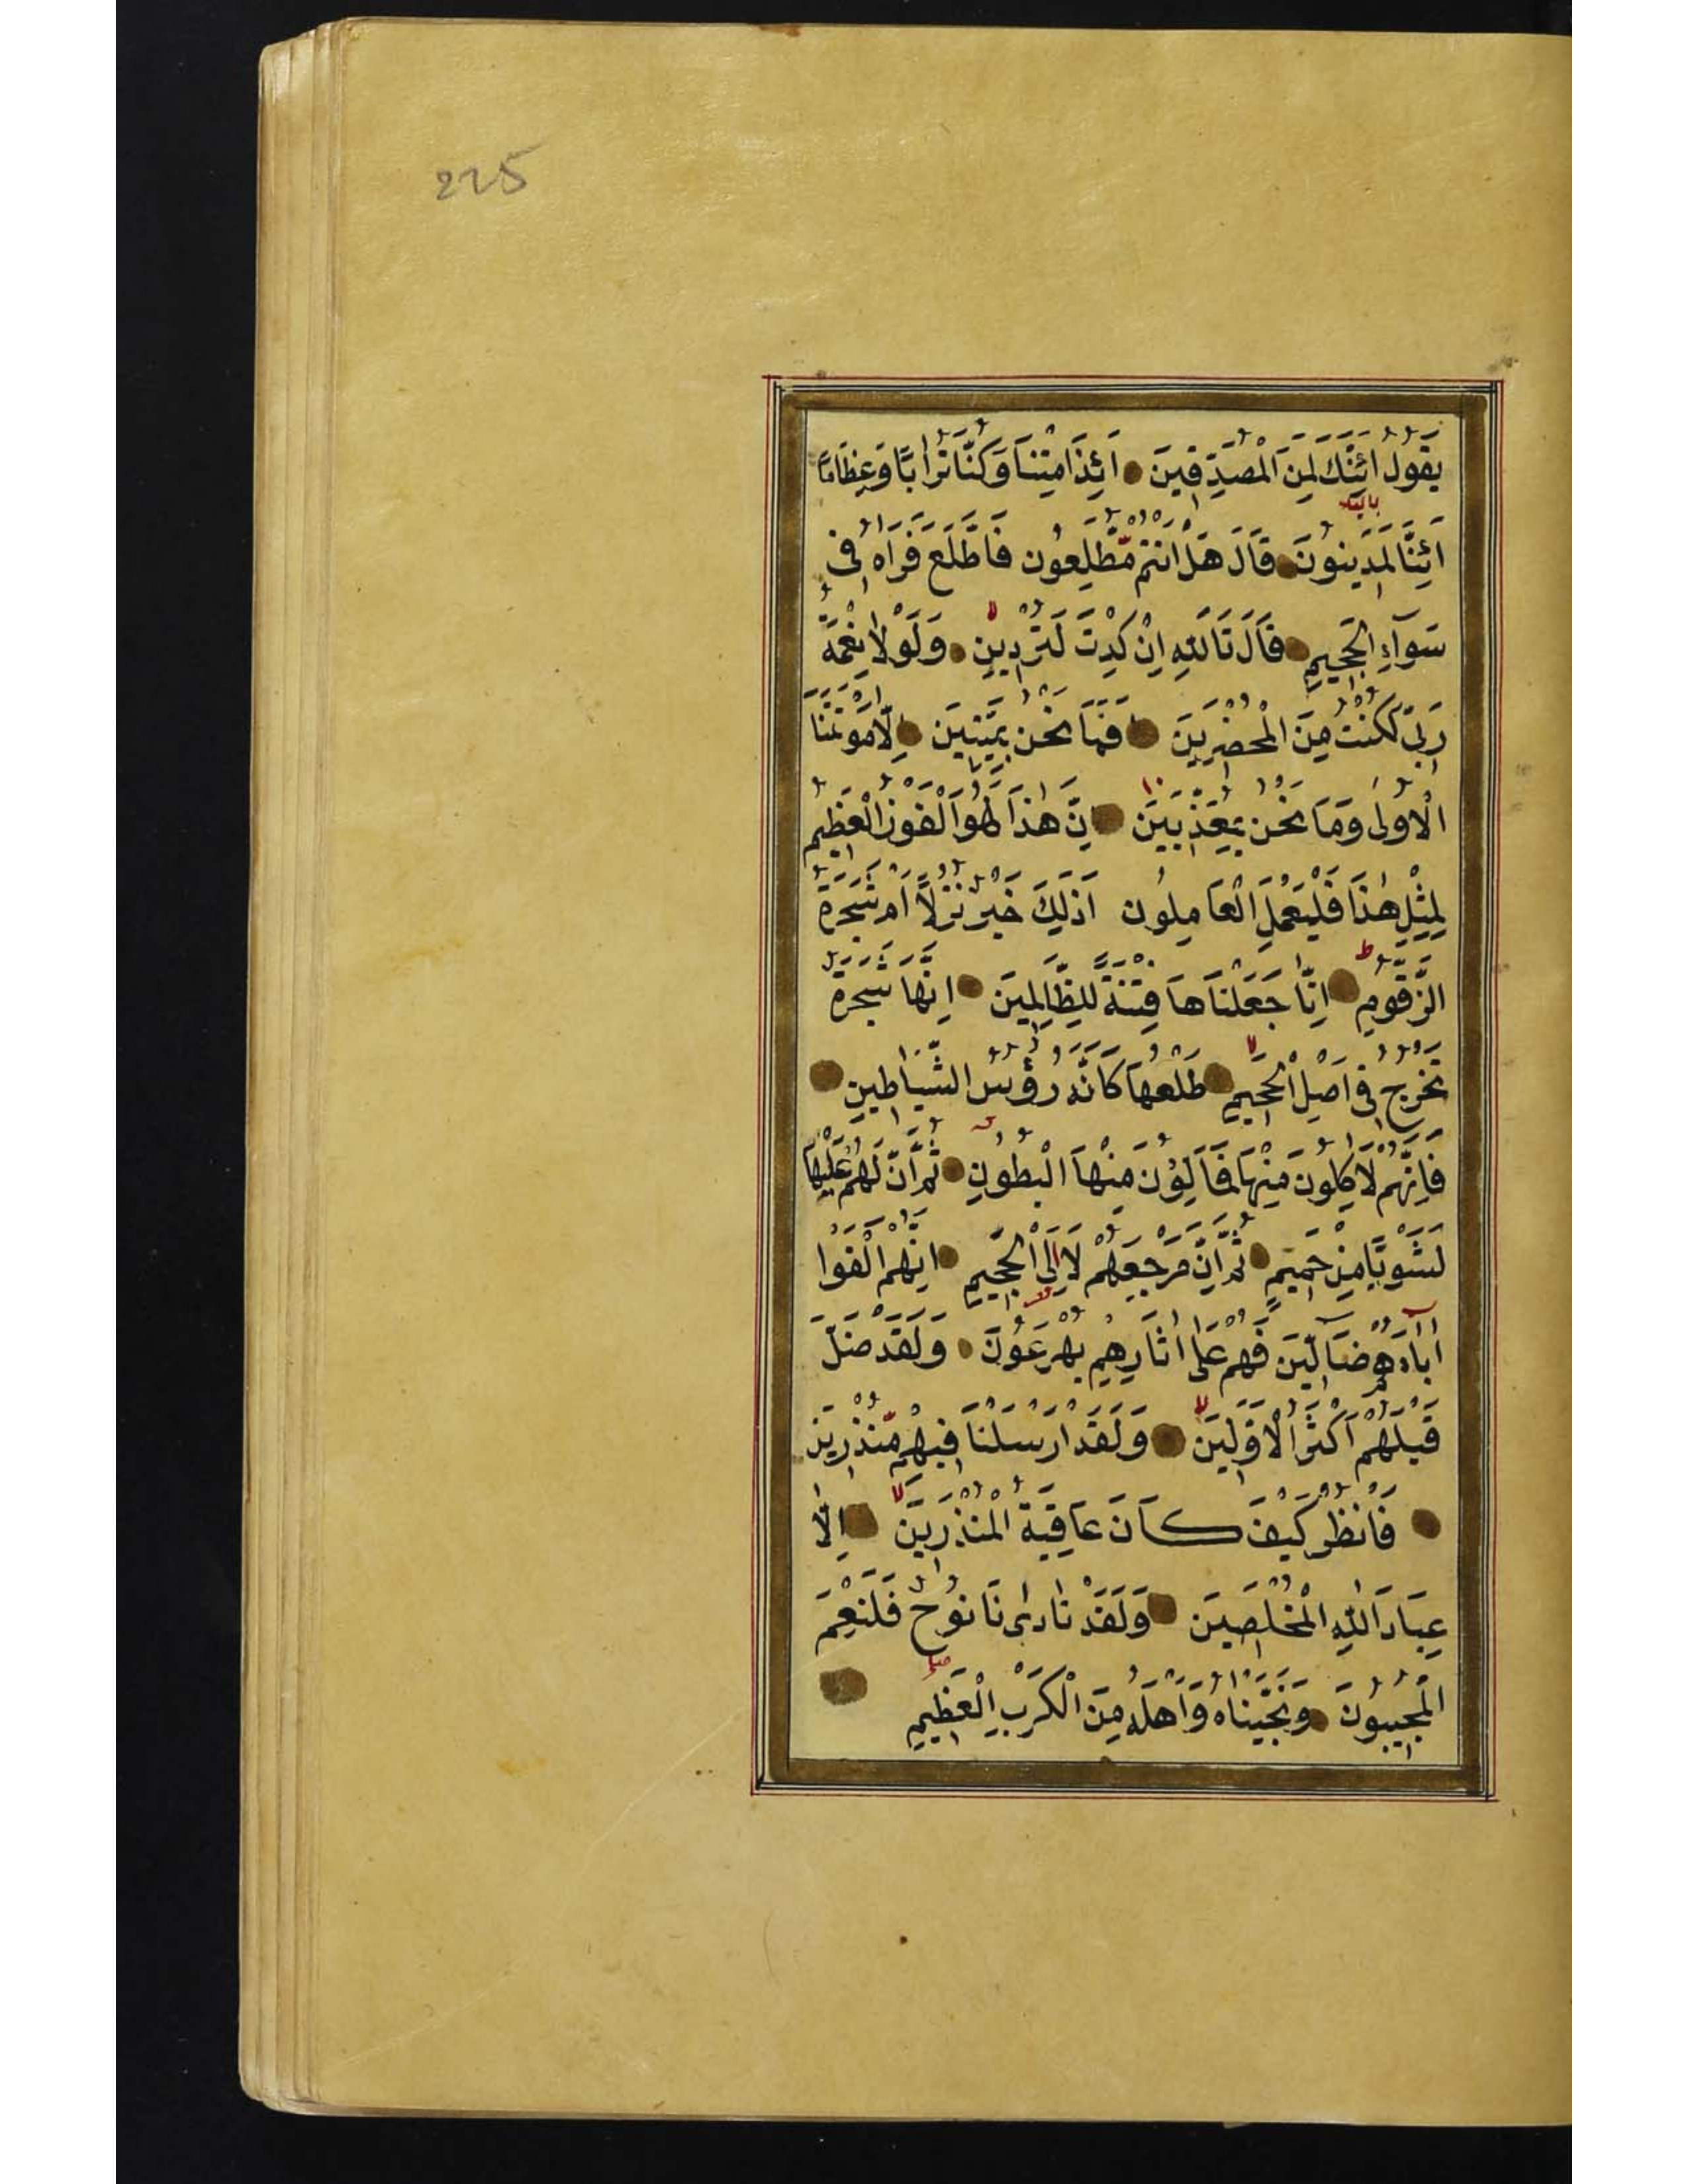 225
يَقُولُ اَئِنَّكَ لَمِنَ الْمُصَدِّقِينَ اَئِذَا مِتْنَا وَكُنَّا تُرَابًا وَعِظَامًا
اَئِنَّا لَمَدِينُونَ قَالَ هَلْ اَنْتُمْ مُّطَّلِعُونَ فَاطَّلَعَ فَرَاٰهُ فِى
سَوَآءِ الْجَحِيمِ قَالَ تَاللّٰهِ اِنْ كِدْتَ لَتُرْدِينِ وَلَوْلَا نِعْمَةُ
رَبِّى لَكُنْتُ مِنَ الْمُحْضَرِينَ فَمَا نَحْنُ بِمَيِّتِينَ اِلَّا مَوْتَتَنَا
الْاُولٰى وَمَا نَحْنُ بِمُعَذَّبِينَ اِنَّ هٰذَا لَهُوَ الْفَوْزُ الْعَظِيمُ
لِمِثْلِ هٰذَا فَلْيَعْمَلِ الْعَامِلُونَ اَذٰلِكَ خَيْرٌ نُزُلًا اَمْ شَجَرَةُ
الزَّقُّومِ اِنَّا جَعَلْنَاهَا فِتْنَةً لِلظَّالِمِينَ اِنَّهَا شَجَرَةٌ
تَخْرُجُ فِى اَصْلِ الْجَحِيمِ طَلْعُهَا كَاَنَّهُ رُؤُسُ الشَّيَاطِينِ
فَاِنَّهُمْ لَاٰكِلُونَ مِنْهَا فَمَالِؤُنَ مِنْهَا الْبُطُونِ ثُمَّ اِنَّ لَهُمْ عَلَيْهَا
لَشَوْبًا مِنْ حَمِيمٍ ثُمَّ اِنَّ مَرْجِعَهُمْ لَاِلَى الْجَحِيمِ اِنَّهُمْ اَلْفَوْا
اٰبَآءَهُمْ ضَآلِّينَ فَهُمْ عَلٰى اٰثَارِهِمْ يُهْرَعُونَ وَلَقَدْ ضَلَّ
قَبْلَهُمْ اَكْثَرُ الْاَوَّلِينَ وَلَقَدْ اَرْسَلْنَا فِيهِمْ مُّنْذِرِينَ
فَانْظُرْ كَيْفَ كَانَ عَاقِبَةُ الْمُنْذَرِينَ اِلَّا
عِبَادَ اللّٰهِ الْمُخْلَصِينَ وَلَقَدْ نَادٰىنَا نُوحٌ فَلَنِعْمَ
الْمُجِيبُونَ وَنَجَّيْنَاهُ وَاَهْلَهُ مِنَ الْكَرْبِ الْعَظِيمِ